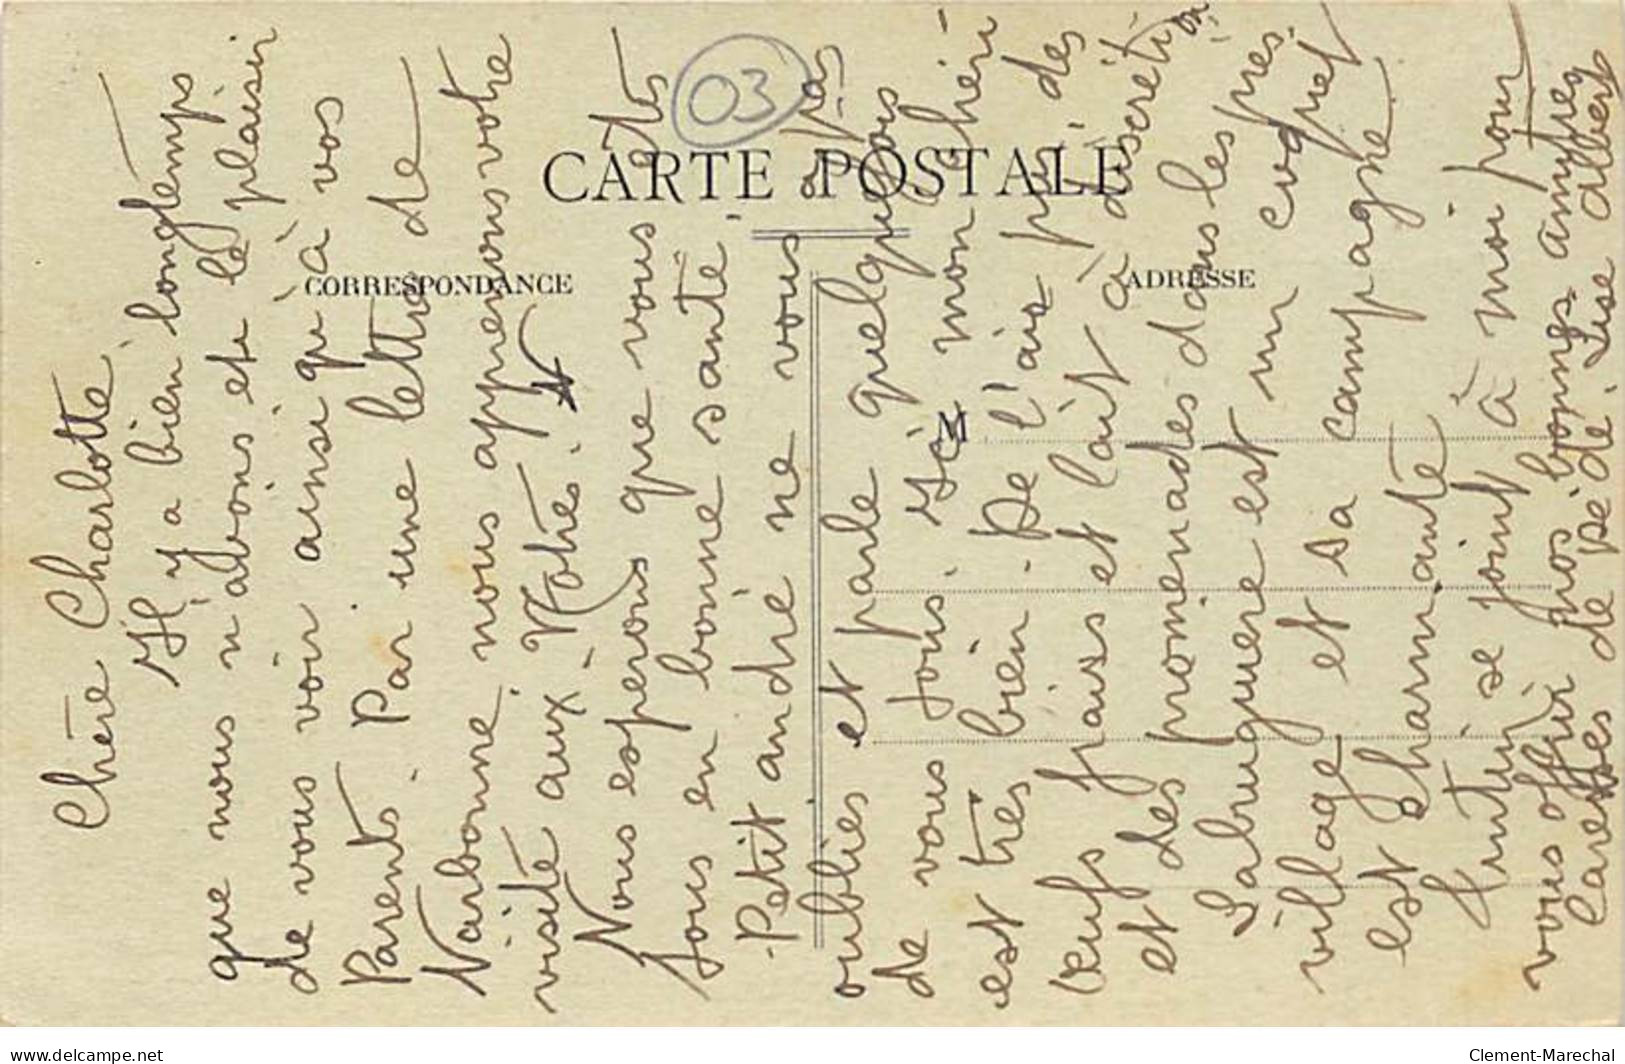 CARTE POSTALE
CORRESPONDANCE
ADRESSE
M
03
Chère Charlotte,
Il y a bien longtemps
que nous n'avons eu le plaisir
de vous voir ainsi qu'à vos
Parents. Par une lettre de
Narbonne nous apprenons votre
visite aux - Nohé.
Nous espérons que vous êtes
tous en bonne santé.
Petit andré ne vous a pas
oubliés et parle quelquefois
de vous tous. Ici mon chéri
est très bien. De l'air pur des
œufs frais et lait à discrétion
et des promenades dans les prés.
Labruguière est un coquet
village et sa campagne
est charmante
se joint à moi pour
vous offrir nos bonnes amitiés
Caresses de Dédé. Lise Albert
delcampe.net
Clement-Marechal